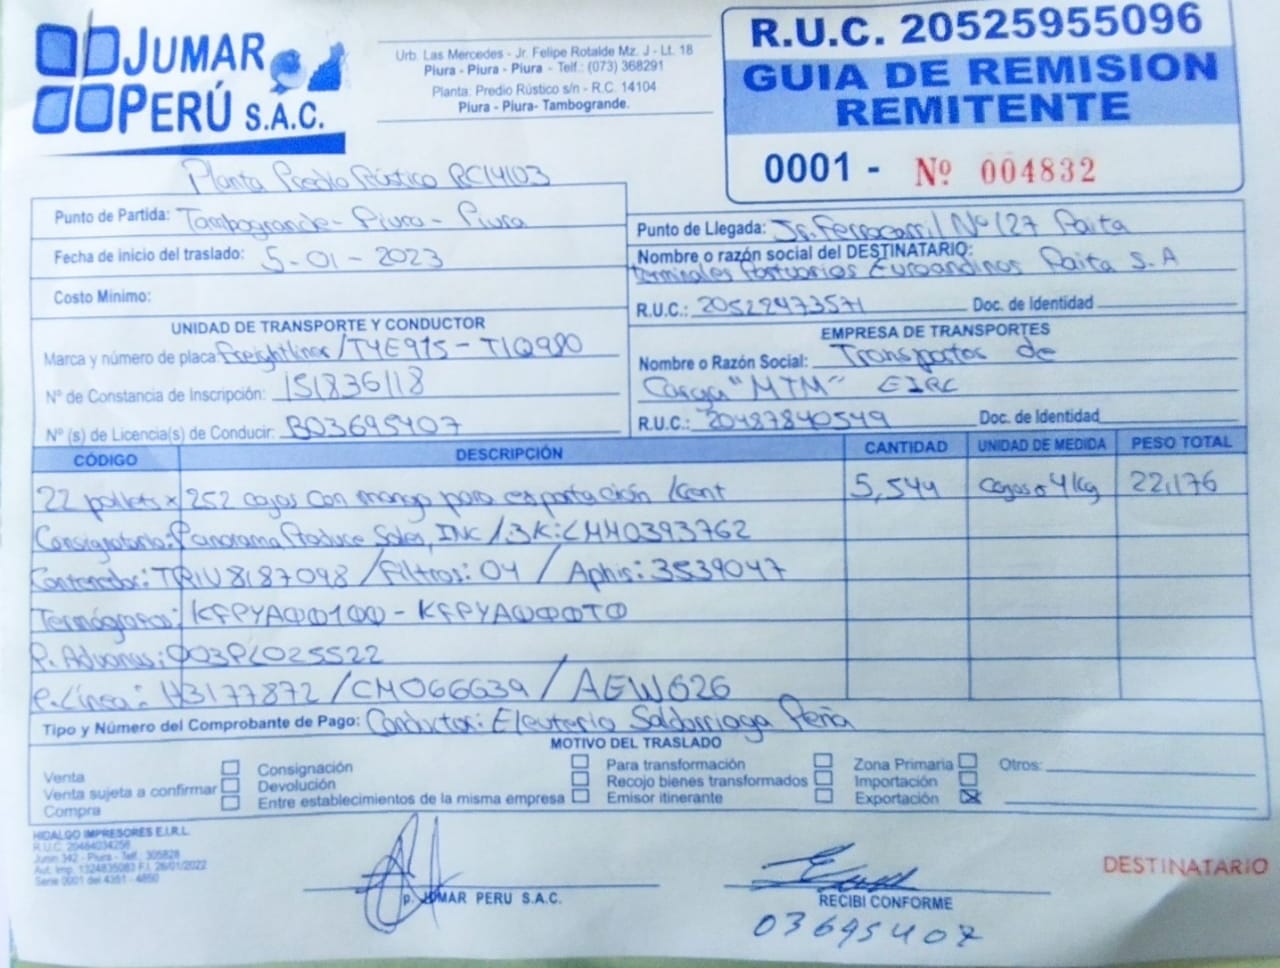 JUMAR
PERÚ S.A.C.
Urb. Las Mercedes - Jr. Felipe Rotalde Mz. J - Lt. 18
Piura - Piura - Piura - Telf.: (073) 368291
Planta: Predio Rústico s/n - R.C. 14104
Piura - Piura- Tambogrande.
R.U.C. 20525955096
GUIA DE REMISION
REMITENTE
0001 - Nº 004832
Planta Predio Rústico RC14103
Punto de Partida: Tambogrande - Piura - Piura
Fecha de inicio del traslado: 5-01-2023
Costo Mínimo:
Punto de Llegada: Jr. Ferrocarril Nº 127 Paita
Nombre o razón social del DESTINATARIO:
Terminales Portuarios Euroandinos Paita S.A
R.U.C.: 20522473571 Doc. de Identidad
UNIDAD DE TRANSPORTE Y CONDUCTOR
Marca y número de placa Freightliner/TYE915 - T1Q980
Nº de Constancia de Inscripción: 151836118
Nº (s) de Licencia(s) de Conducir: B03695407
EMPRESA DE TRANSPORTES
Nombre o Razón Social: Transportes de
Carga "MTM" EIRL
R.U.C.: 20487840549 Doc. de Identidad
CÓDIGO DESCRIPCIÓN CANTIDAD UNIDAD DE MEDIDA PESO TOTAL
22 pallets x 252 cajas con mango para exportación /Kent 5,544 cajas 4kg 22,176
Consignatario: Panorama Produce Sales, INC / BK: LMM0393762
Contenedor: TRIU8187098 / Filtros: 04 / Aphis: 3539047
Termógrafos: KFPYA00100 - KFPYA000T0
P. Aduanas: 003PL025522
P. Línea: H3177872 / CM066639 / AEW626
Tipo y Número del Comprobante de Pago: Conductor: Eleuterio Saldarriaga Peña
MOTIVO DEL TRASLADO
Venta
Venta sujeta a confirmar
Compra
Consignación
Devolución
Entre establecimientos de la misma empresa
Para transformación
Recojo bienes transformados
Emisor itinerante
Zona Primaria
Importación
Exportación
Otros:
HIDALGO IMPRESORES E.I.R.L.
R.U.C. 20484034256
Junin 342 - Piura - Telf.: 305828
Aut. Imp. 1324835083 F.I. 26/01/2022
Serie 0001 del 4351 - 4850
p. JUMAR PERU S.A.C.
RECIBÍ CONFORME
03695407
DESTINATARIO